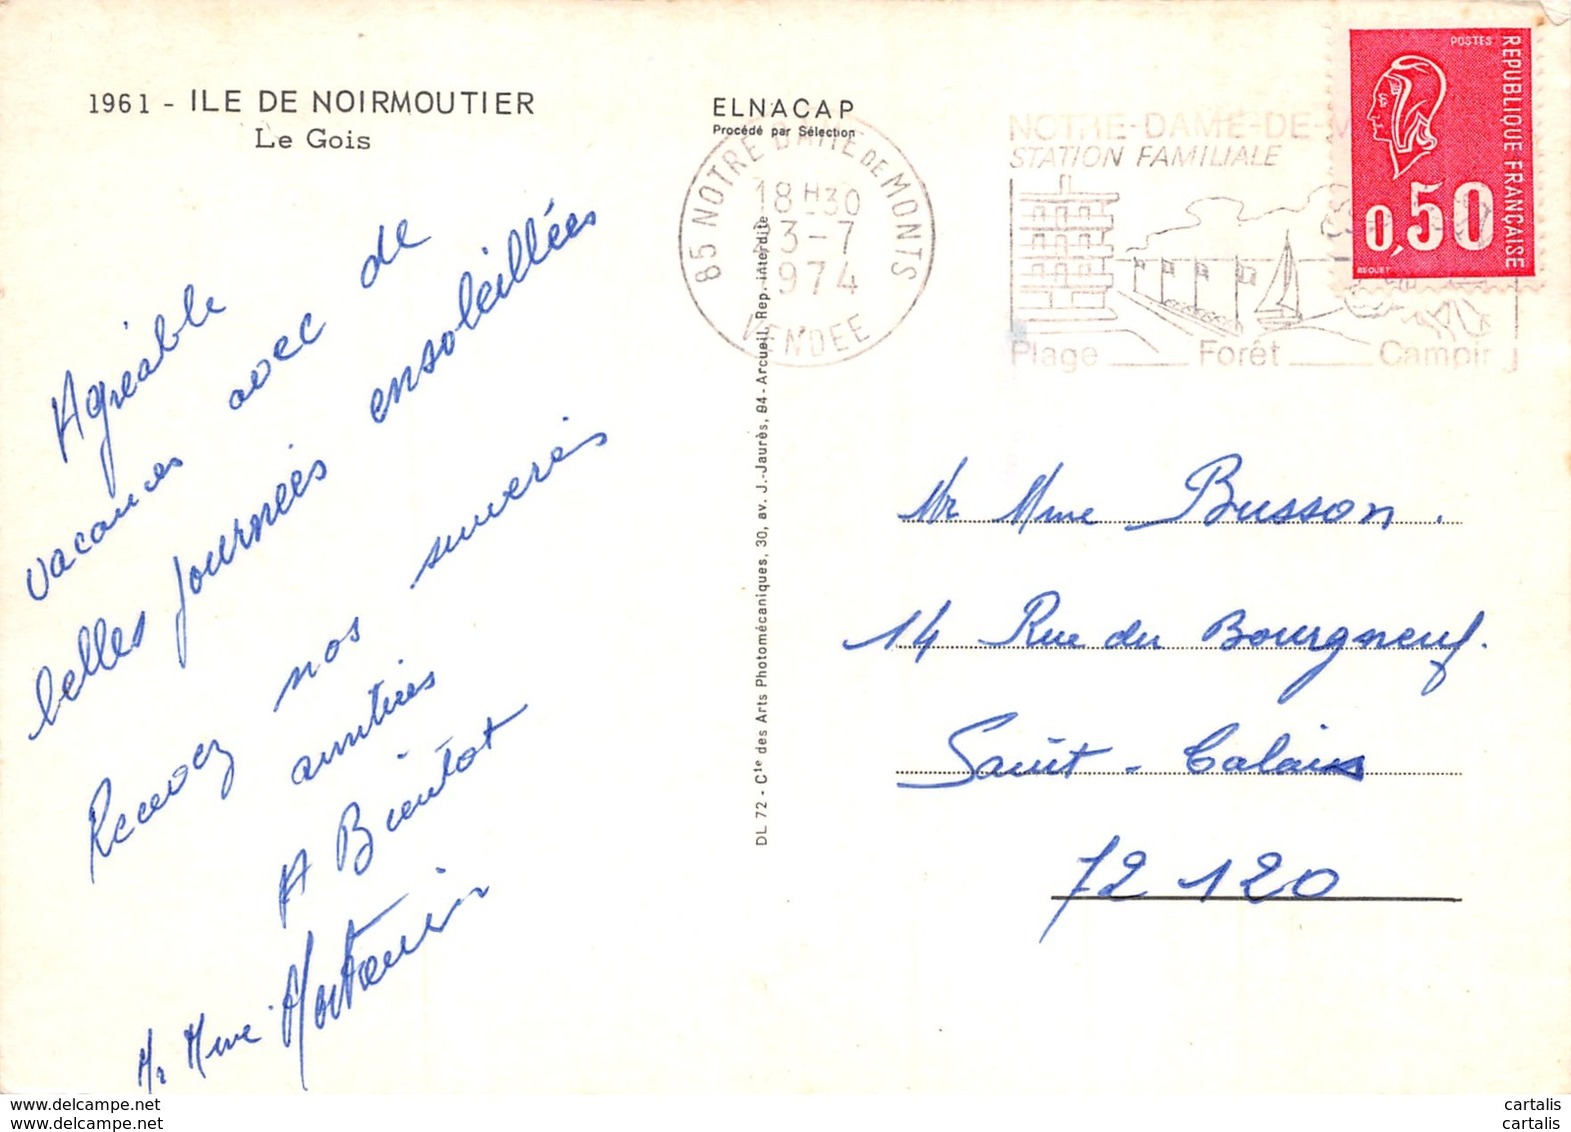 1961 - ILE DE NOIRMOUTIER
Le Gois
Agréable
vacances avec de
belles journées ensoleillées
Recevez nos
amitiés
A Bientot
Mr Mme
ELNACAP
Procédé par Sélection
DL 72 - Cie des Arts Photomécaniques, 30, av. J.-Jaurès, 94 - Arcueil, Rep. interdite
85 NOTRE DAME DE MONTS
18 H30
23-7
1974
VENDEE
NOTRE-DAME-DE-M
STATION FAMILIALE
Plage Forêt Campin
POSTES
REPUBLIQUE FRANÇAISE
0,50
BEQUET
Mr Mme Busson.
14 Rue du Bourgneuf.
Saint-Calais
72120
www.delcampe.net
www.delcampe.net
cartalis
cartalis